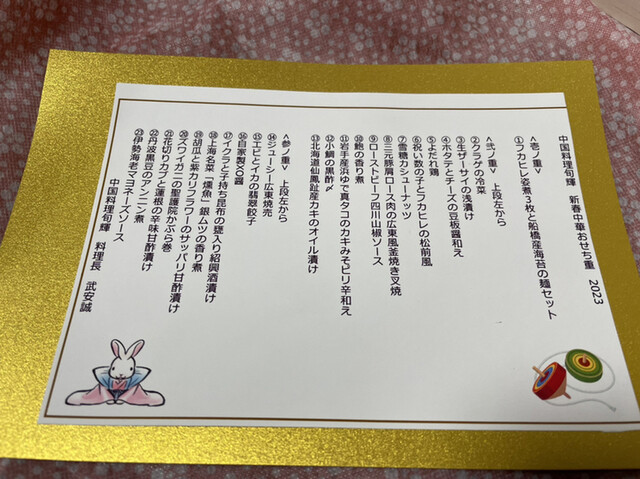 中国料理旬輝　新春中華おせち重　2023
<壱ノ重>
①フカヒレ姿煮3枚と船橋産海苔の麺セット
<弐ノ重>　上段左から
②クラゲの冷菜
③生ザーサイの浅漬け
④ホタテとチーズの豆板醤和え
⑤よだれ鶏
⑥祝い数の子とフカヒレの松前風
⑦雪糖カシューナッツ
⑧三元豚肩ロース肉の広東風釜焼き叉焼
⑨ローストビーフ四川山椒ソース
⑩鮑の香り煮
⑪岩手産浜ゆで真タコのカキみそピリ辛和え
⑫小鯛の黒酢〆
⑬北海道仙鳳趾産カキのオイル漬け
<参ノ重>　上段左から
⑭ジューシー広東焼売
⑮エビとイカの翡翠餃子
⑯自家製XO醤
⑰イクラと子持ち昆布の甕入り紹興酒漬け
⑱上海名菜「燻魚」銀ムツの香り煮
⑲胡瓜と紫カリフラワーのサッパリ甘酢漬け
⑳ズワイガニの聖護院かぶら巻
㉑花切りカブと蓮根の辛味甘酢漬け
㉒丹波黒豆のアンニン煮
㉓伊勢海老マヨネーズソース
中国料理旬輝　料理長　武安誠